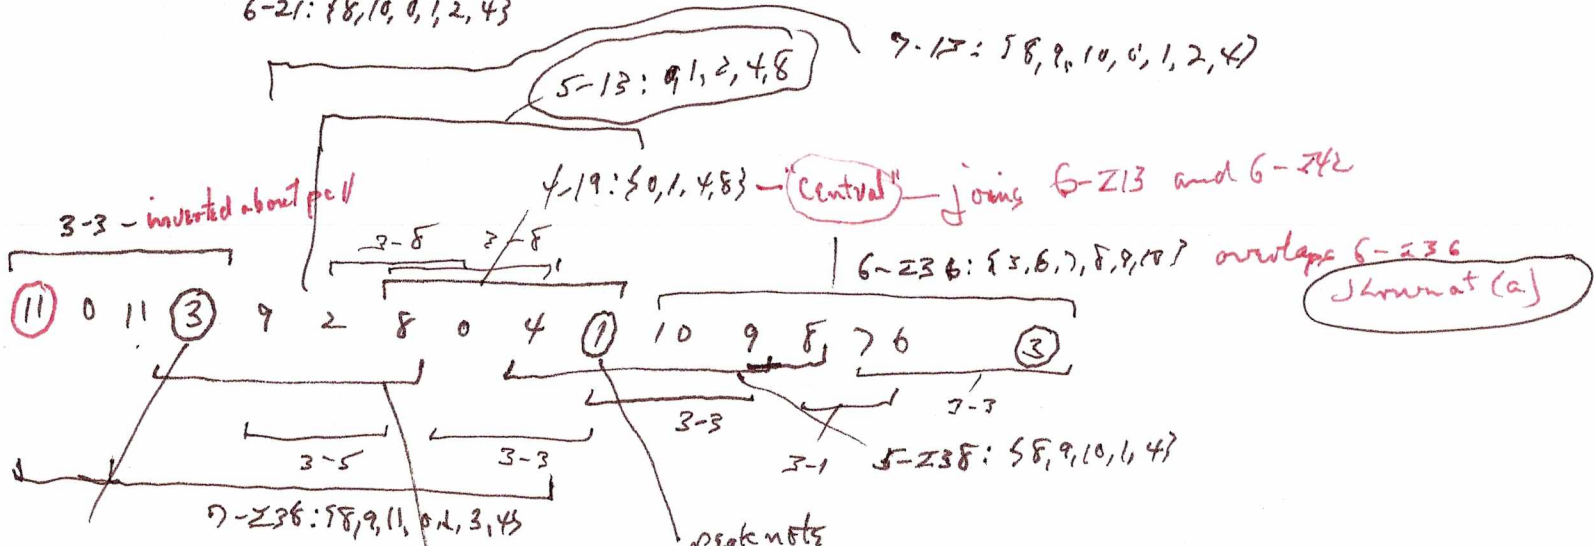 6-21: {8,10,0,1,2,4}
7-13: {8,9,10,0,1,2,4}
5-13: 0,1,2,4,8
4-19: {0,1,4,8} — "central" — joins 6-Z13 and 6-Z42
3-3 - inverted about pc 11
3-8 3-8
6-Z36: {3,6,7,8,9,10} overlaps 6-Z36
shown at (a)
11 0 11 3 9 2 8 0 4 1 10 9 8 7 6 3
3-3 3-3
3-5 3-3 3-1 5-Z38: {8,9,10,1,4}
7-Z38: {8,9,11,0,2,3,4}
peak note